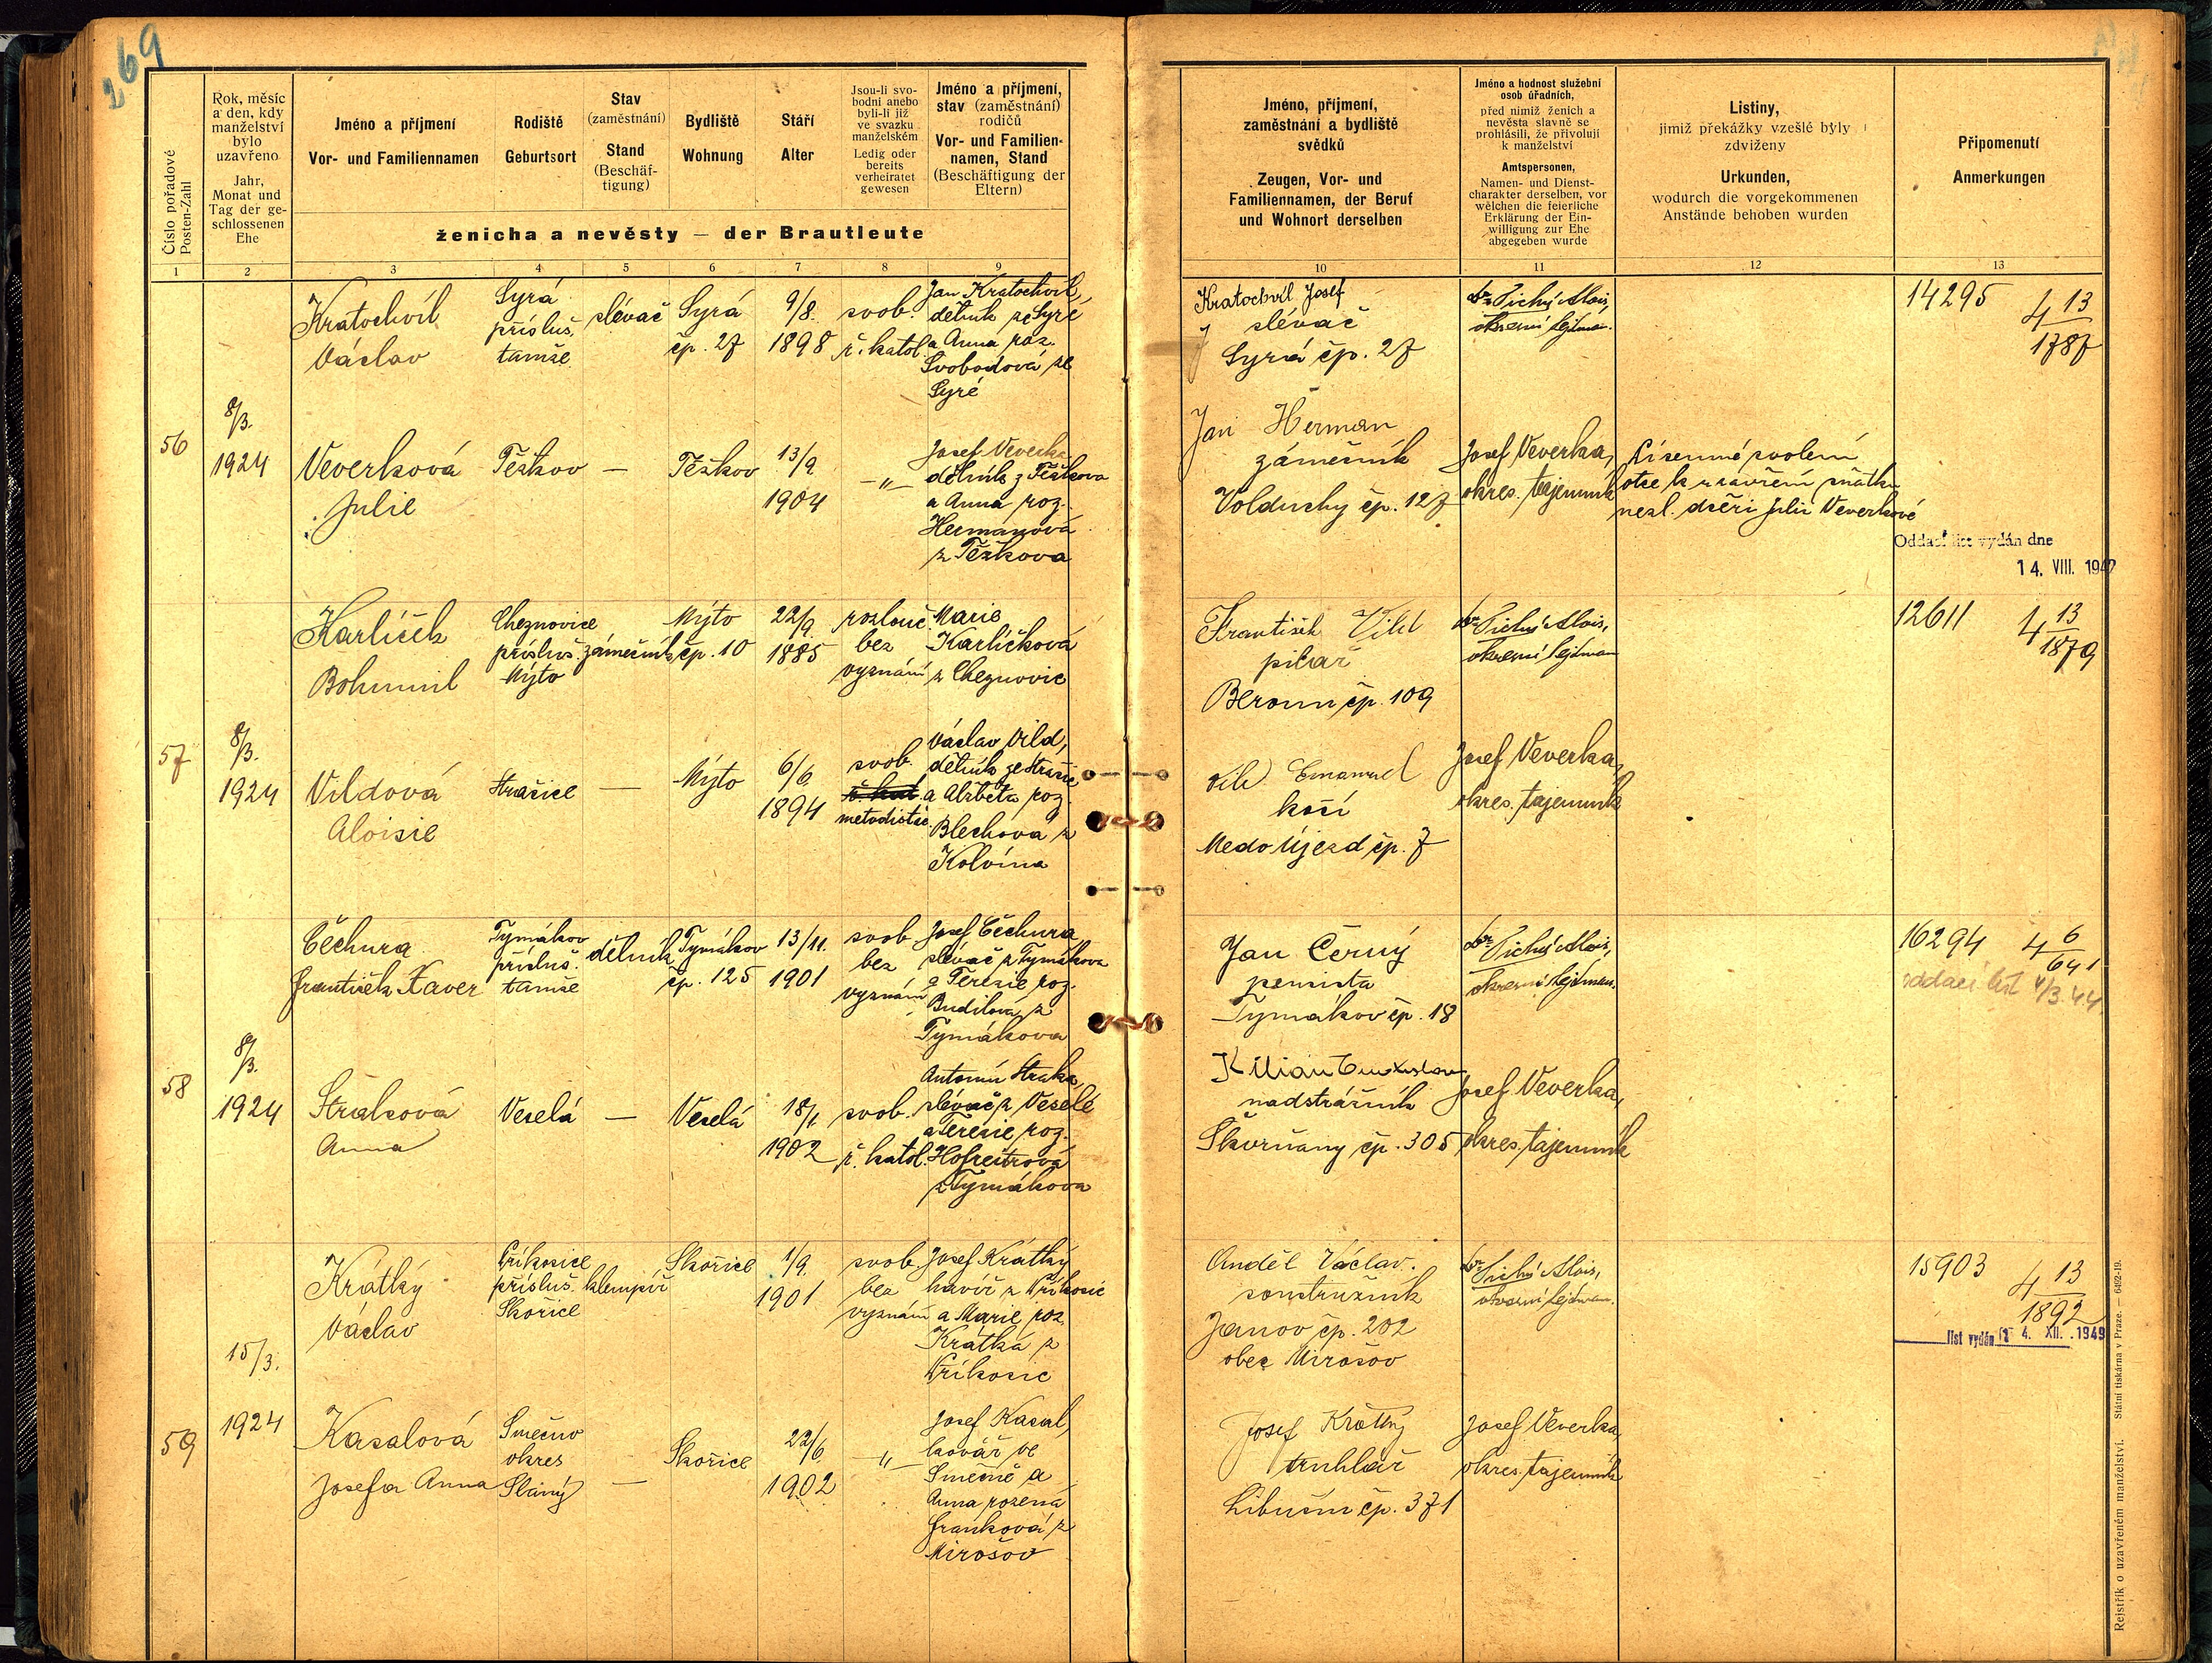 269
Číslo pořadové
Posten-Zahl
Rok, měsíc
a den, kdy
manželství
bylo
uzavřeno
Jahr,
Monat und
Tag der ge-
schlossenen
Ehe
Jméno a příjmení
Vor- und Familiennamen
Rodiště
Geburtsort
Stav
(zaměstnání)
Stand
(Beschäf-
tigung)
Bydliště
Wohnung
Stáří
Alter
Jsou-li svo-
bodni anebo
byli-li již
ve svazku
manželském
Ledig oder
bereits
verheiratet
gewesen
Jméno a příjmení,
stav (zaměstnání)
rodičů
Vor- und Familien-
namen, Stand
(Beschäftigung der
Eltern)
ženicha a nevěsty — der Brautleute
1 2 3 4 5 6 7 8 9
56
8/3.
1924
Kratochvíl
Václav
Syrá
přísluš.
tamže
slévač
Syrá
čp. 27
9/8.
1898
svob.
ř. katol.
Jan Kratochvíl,
dělník ze Syré
a Anna roz.
Svobodová ze
Syré
Veverková
Julie
Těškov
—
Těškov
13/9
1904
—„—
Josef Veverka
dělník z Těškova
a Anna roz.
Heřmanová
z Těškova
57
8/3.
1924
Karlíček
Bohumil
Cheznovice
přísluš.
Mýto
zámečník
Mýto
čp. 10
22/9.
1885
rozlouč.
bez
vyznání
Marie
Karlíčková
z Cheznovic
Vildová
Aloisie
Strašice
—
Mýto
6/6
1894
svob.
ř. kat.
metodistic.
Václav Vild,
dělník ze Strašic
a Alžběta roz.
Blechová z
Kolvína
58
8/3.
1924
Čechura
František Xaver
Tymákov
přísluš.
tamže
dělník
Tymákov
čp. 125
13/11.
1901
svob.
bez
vyznání
Josef Čechura
slévač z Tymákova
a Terezie roz.
Budilová z
Tymákova
Straková
Anna
Veselá
—
Veselá
18/1
1902
svob.
ř. katol.
Antonín Straka,
slévač z Veselé
a Terezie roz.
Hofreitrová
z Tymákova
59
15/3.
1924
Krátký
Václav
Příkosice
přísluš.
Skořice
klempíř
Skořice
1/9.
1901
svob.
bez
vyznání
Josef Krátký
havíř z Příkosic
a Marie roz.
Krátká z
Příkosic
Kasalová
Josefa Anna
Smečno
okres
Slaný
—
Skořice
22/6
1902
—„—
Josef Kasal,
kovář ve
Smečně a
Anna rozená
Franková z
Mirošov
Jméno, příjmení,
zaměstnání a bydliště
svědků
Zeugen, Vor- und
Familiennamen, der Beruf
und Wohnort derselben
Jméno a hodnost služební
osob úřadních,
před nimiž ženich a
nevěsta slavně se
prohlásili, že přivolují
k manželství
Amtspersonen,
Namen- und Dienst-
charakter derselben, vor
welchen die feierliche
Erklärung der Ein-
willigung zur Ehe
abgegeben wurde
Listiny,
jimiž překážky vzešlé byly
zdviženy
Urkunden,
wodurch die vorgekommenen
Anstände behoben wurden
Připomenutí
Anmerkungen
10 11 12 13
Kratochvíl Josef
slévač
Syrá čp. 27
Dr Tichý Alois,
okresní hejtman.
14295
4 13
1787
Jan Heřman
zámečník
Volduchy čp. 127
Josef Veverka,
okres. tajemník
Písemné svolení
otce k uzavření sňatku
nezl. dceři Julii Veverkové
Oddací list vydán dne
14. VIII. 1942
František Vild
pilař
Beroun čp. 109
Dr Tichý Alois,
okresní hejtman
12611
4 13
1879
Vild Emanuel
kočí
Medo Újezd čp. 7
Josef Veverka,
okres. tajemník
Jan Černý
pensista
Tymákov čp. 18
Dr Tichý Alois,
okresní hejtman.
16294
4 6
641
oddací list 4/3.44
Kilian
nadstrážník
Skvrňany čp. 305
Josef Veverka,
okres. tajemník
Anděl Václav.
soustružník
Janov čp. 202
obec Mirošov
Dr Tichý Alois,
okresní hejtman.
15903
4 13
1892
list vydán 14. XII. 1949
Josef Krátký
truhlář
Libušín čp. 371
Josef Veverka,
okres. tajemník
Rejstřík o uzavřeném manželství. Státní tiskárna v Praze. — 6492-19.